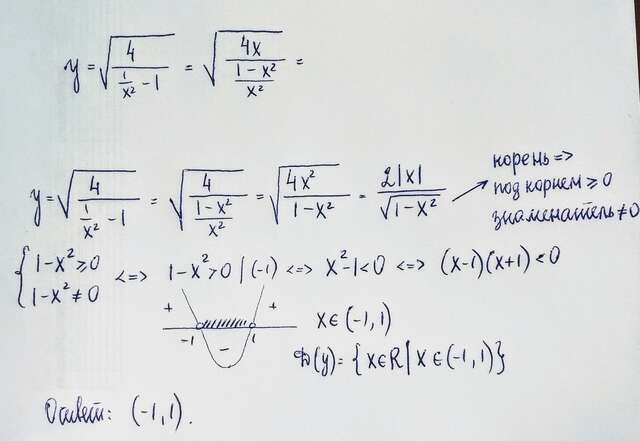 y = √(4/(1/x² - 1)) = √(4x/((1-x²)/x²)) =
y = √(4/(1/x² - 1)) = √(4/((1-x²)/x²)) = √(4x²/(1-x²)) = 2|x|/√(1-x²)
корень =>
под корнем ≥ 0
знаменатель ≠ 0
{ 1-x² ≥ 0
1-x² ≠ 0 <=> 1-x² > 0 | (-1) <=> x²-1 < 0 <=> (x-1)(x+1) < 0
+ - +
-1 1
x ∈ (-1, 1)
D(y) = {x ∈ R | x ∈ (-1, 1)}
Ответ: (-1, 1).